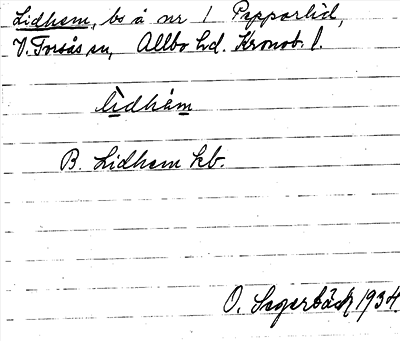 Lidhem, bs å nr 1 Pepparlid,
V. Torsås sn, Allbo hd. Kronob. l.
lìdhèm
B. Lidhem kb.
O. Segerbäck 1934.